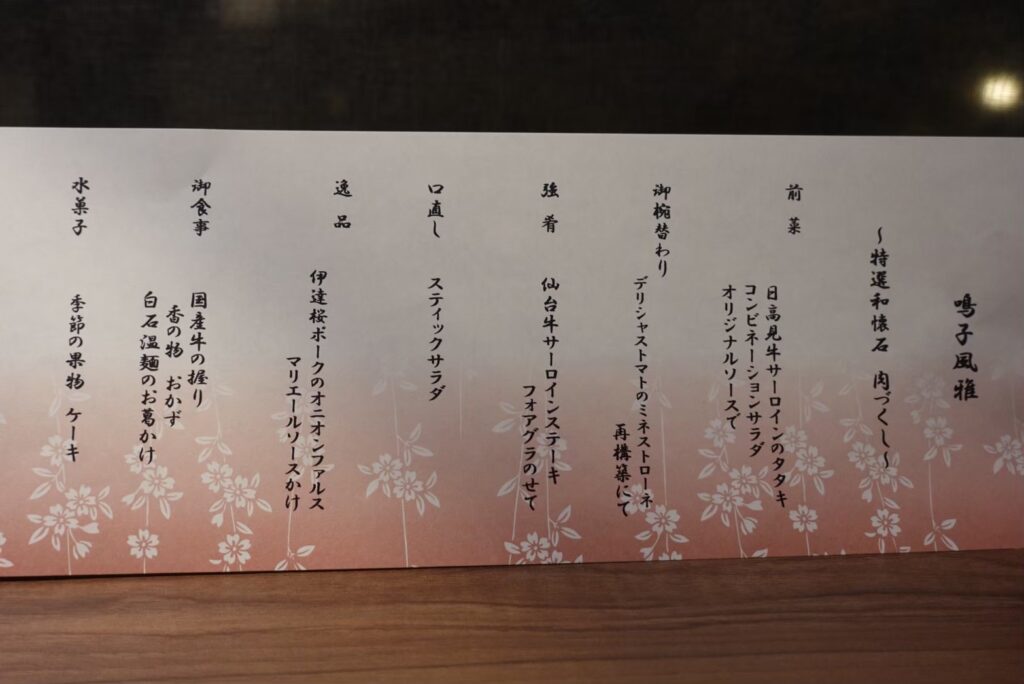 鳴子風雅
～特選和懐石 肉づくし～
前菜
日高見牛サーロインのタタキ
コンビネーションサラダ
オリジナルソースで
御椀替わり
デリシャストマトのミネストローネ
再構築にて
強肴
仙台牛サーロインステーキ
フォアグラのせて
口直し
スティックサラダ
逸品
伊達桜ポークのオニオンファルス
マリエールソースかけ
御食事
国産牛の握り
香の物 おかず
白石温麺のお葛かけ
水菓子
季節の果物 ケーキ